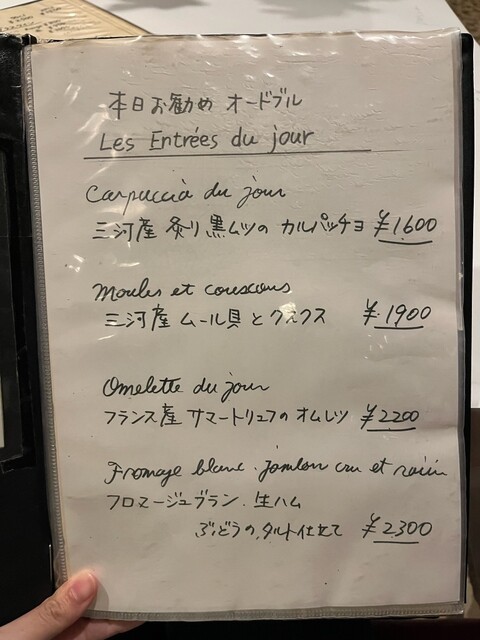 本日お勧め オードブル
Les Entrées du jour
Carpuccia du jour
三河産 炙り 黒ムツの カルパッチョ ¥1600
Moules et couscous
三河産 ムール貝とクスクス ¥1900
Omelette du jour
フランス産 サマートリュフのオムレツ ¥2200
Fromage blanc. jambon cru et raisin
フロマージュブラン. 生ハム
ぶどうの.タルト仕立て ¥2300